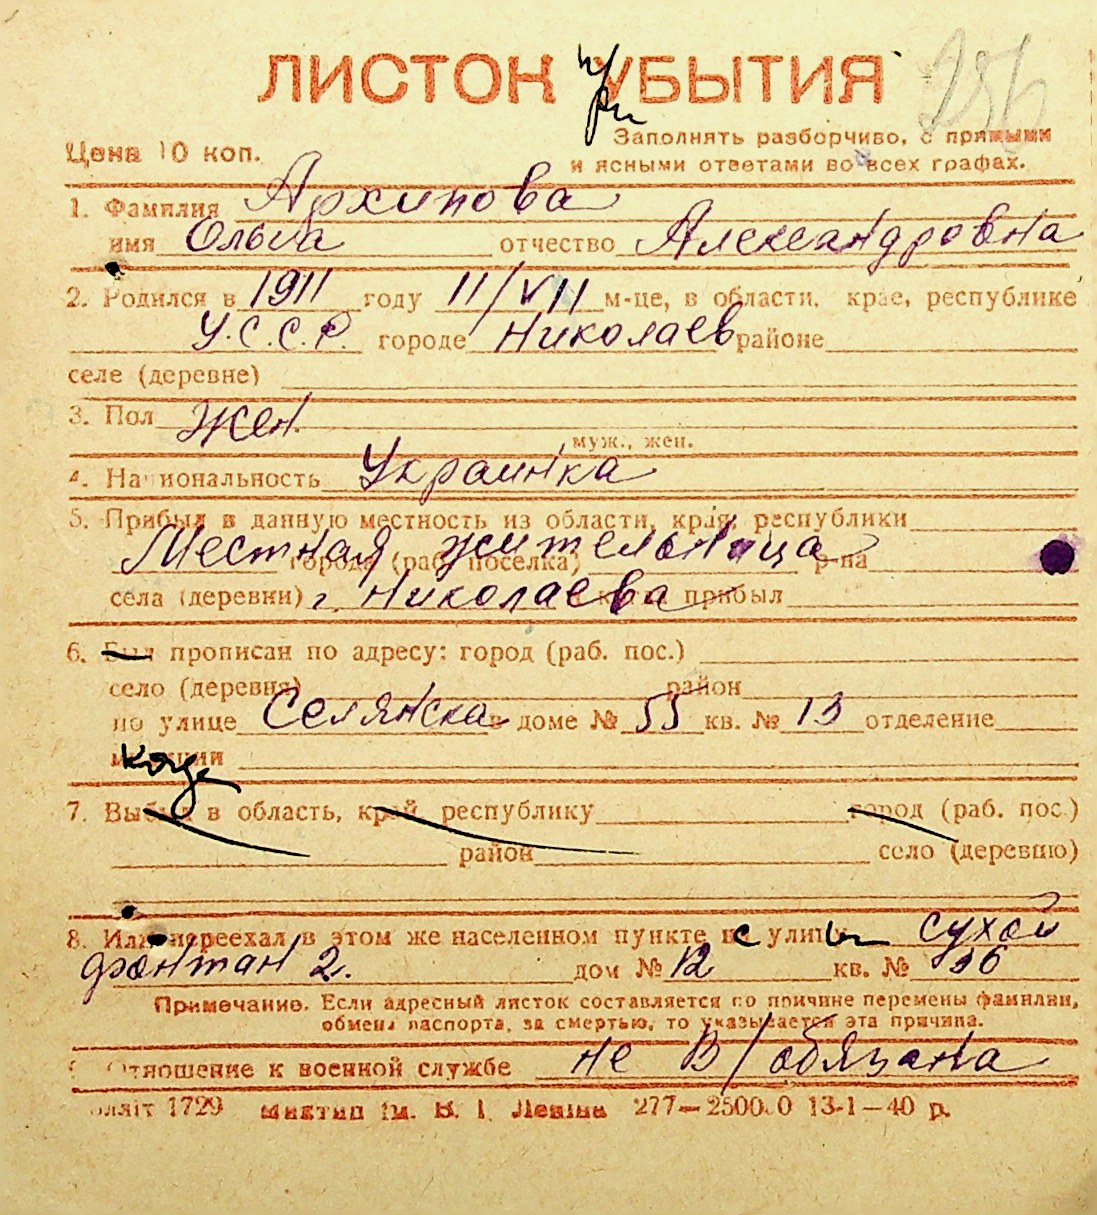 ЛИСТОК УБЫТИЯ
при
Цена 10 коп.
Заполнять разборчиво, с прямыми
и ясными ответами во всех графах.
1. Фамилия Архипова
имя Ольга отчество Александровна
2. Родился в 1911 году 11/VII м-це, в области, крае, республике
У.С.С.Р. городе Николаев районе
селе (деревне)
3. Пол Жен.
муж., жен.
4. Национальность Украинка
5. Прибыл в данную местность из области, края, республики
Местная жительница
города (раб. поселка) р-на
села (деревни) г. Николаева прибыл
6. Был прописан по адресу: город (раб. пос.)
село (деревня) район
по улице Селянска в доме № 55 кв. № 13 отделение
милиции
7. Выбыл в область, край, республику город (раб. пос.)
район село (деревню)
8. Или переехал в этом же населенном пункте с улицы Сухой
фонтан 2. дом № 12 кв. №
Примечание. Если адресный листок составляется по причине перемены фамилии,
обмена паспорта, за смертью, то указывается эта причина.
Отношение к военной службе не в/обязана
1729 ім. В. І. Леніна 277—2500.0 13-1—40 р.